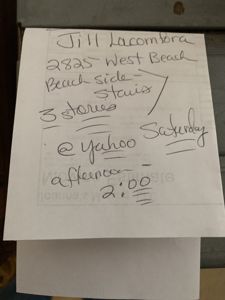 Jill Lacombora
2825 West Beach
Beach side -
Stairs
3 stories
@ Yahoo Saturday
afternoon -
2:00